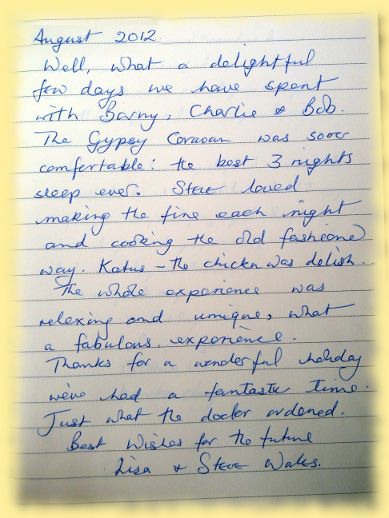 August 2012.
Well, what a delightful
few days we have spent
with Barny, Charlie & Bob.
The Gypsy Caravan was soooo
comfortable: the best 3 nights
sleep ever. Steve loved
making the fire each night
and cooking the old fashioned
way. - the chicken was delish.
The whole experience was
relaxing and unique, what
a fabulous experience.
Thanks for a wonderful holiday
we've had a fantastic time.
Just what the doctor ordered.
Best Wishes for the future
Lisa & Steve